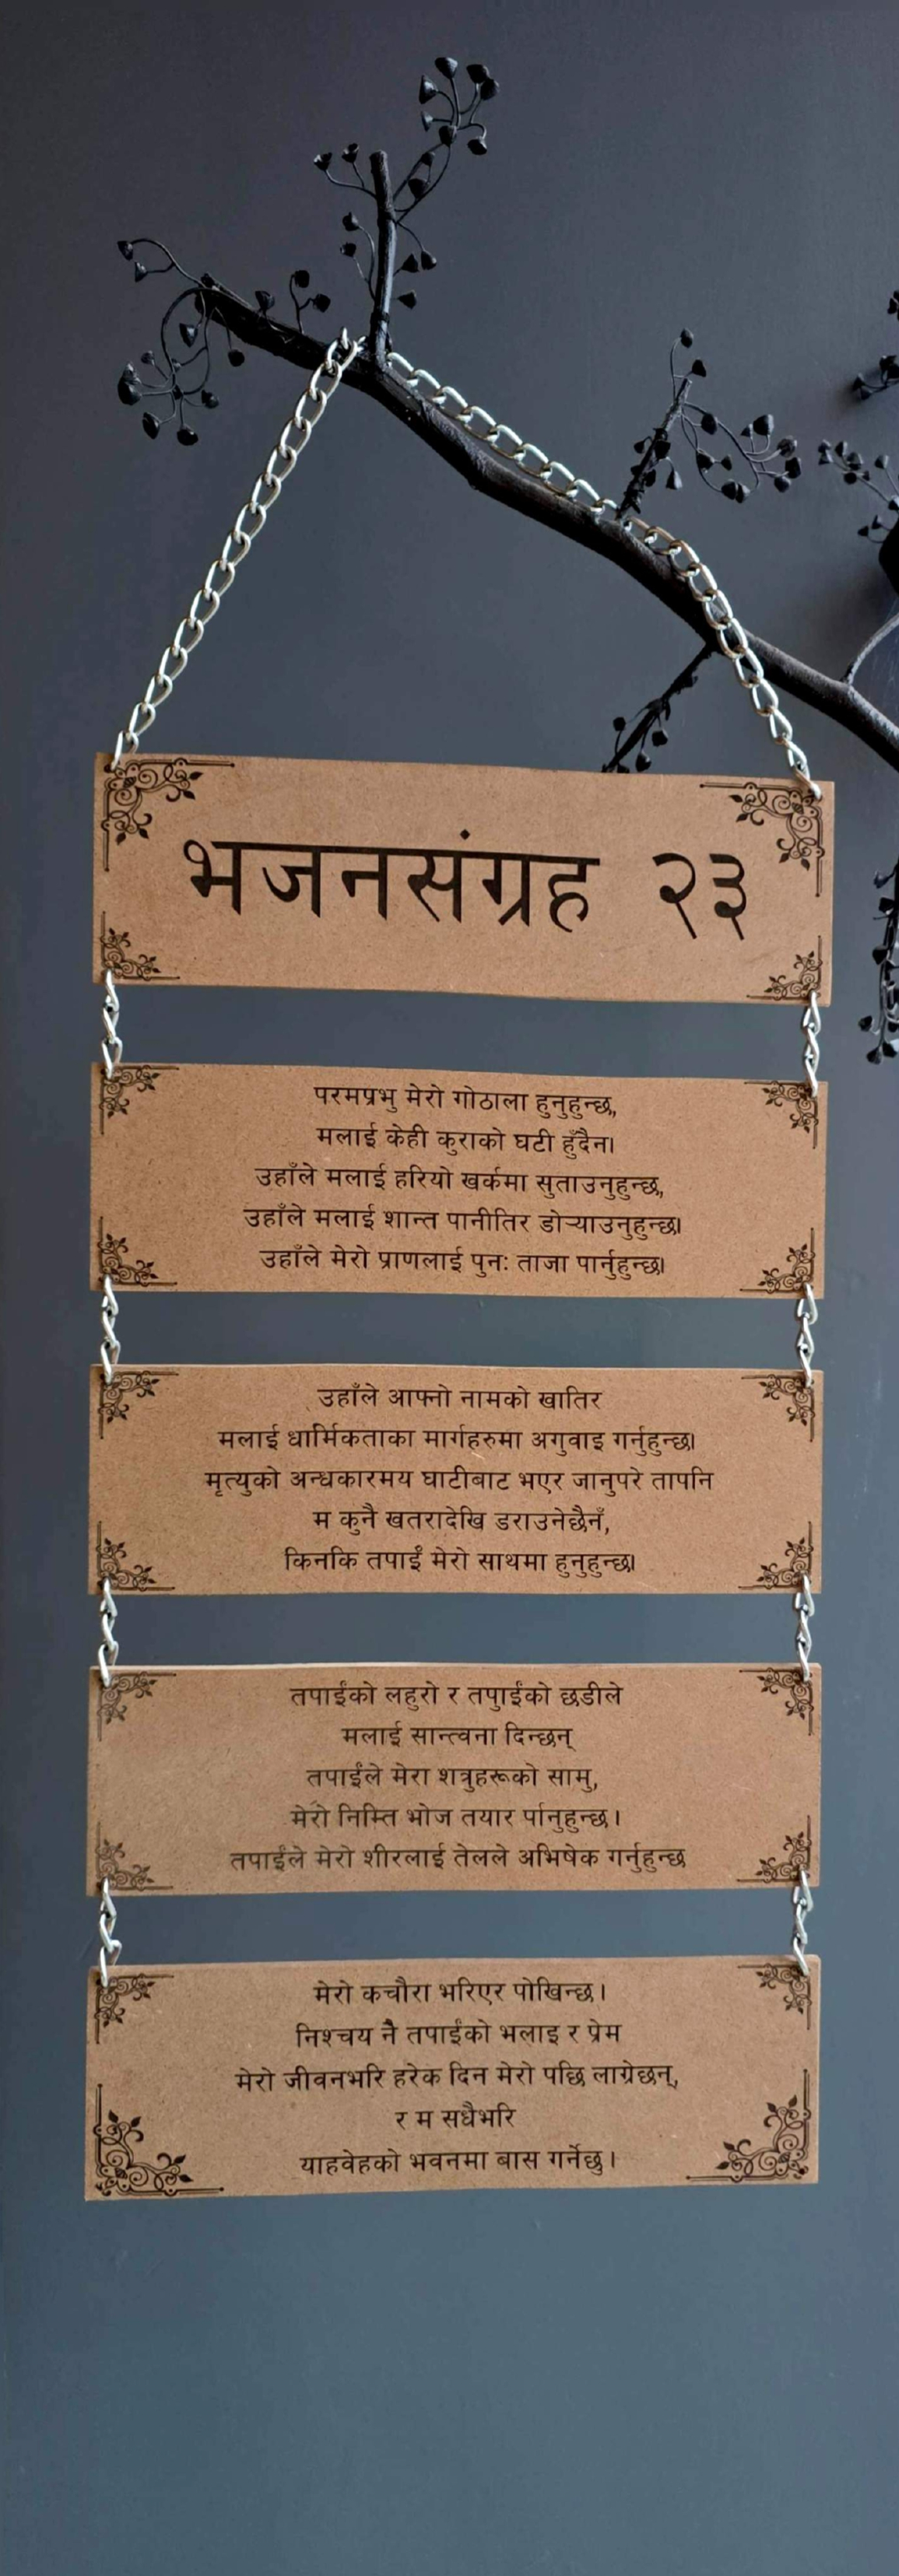 भजनसंग्रह २३
परमप्रभु मेरो गोठाला हुनुहुन्छ,
मलाई केही कुराको घटी हुँदैन।
उहाँले मलाई हरियो खर्कमा सुताउनुहुन्छ,
उहाँले मलाई शान्त पानीतिर डोऱ्याउनुहुन्छ।
उहाँले मेरो प्राणलाई पुनः ताजा पार्नुहुन्छ।
उहाँले आफ्नो नामको खातिर
मलाई धार्मिकताका मार्गहरुमा अगुवाइ गर्नुहुन्छ।
मृत्युको अन्धकारमय घाटीबाट भएर जानुपरे तापनि
म कुनै खतरादेखि डराउनेछैनँ,
किनकि तपाईं मेरो साथमा हुनुहुन्छ।
तपाईंको लहुरो र तपुाईंको छडीले
मलाई सान्त्वना दिन्छन्
तपाईंले मेरा शत्रुहरूको सामु,
मेरो निम्ति भोज तयार र्पानुहुन्छ।
तपाईंले मेरो शीरलाई तेलले अभिषेक गर्नुहुन्छ
मेरो कचौरा भरिएर पोखिन्छ।
निश्चय नै तपाईंको भलाइ र प्रेम
मेरो जीवनभरि हरेक दिन मेरो पछि लाग्नेछन्,
र म सधैभरि
याहवेहको भवनमा बास गर्नेछु।